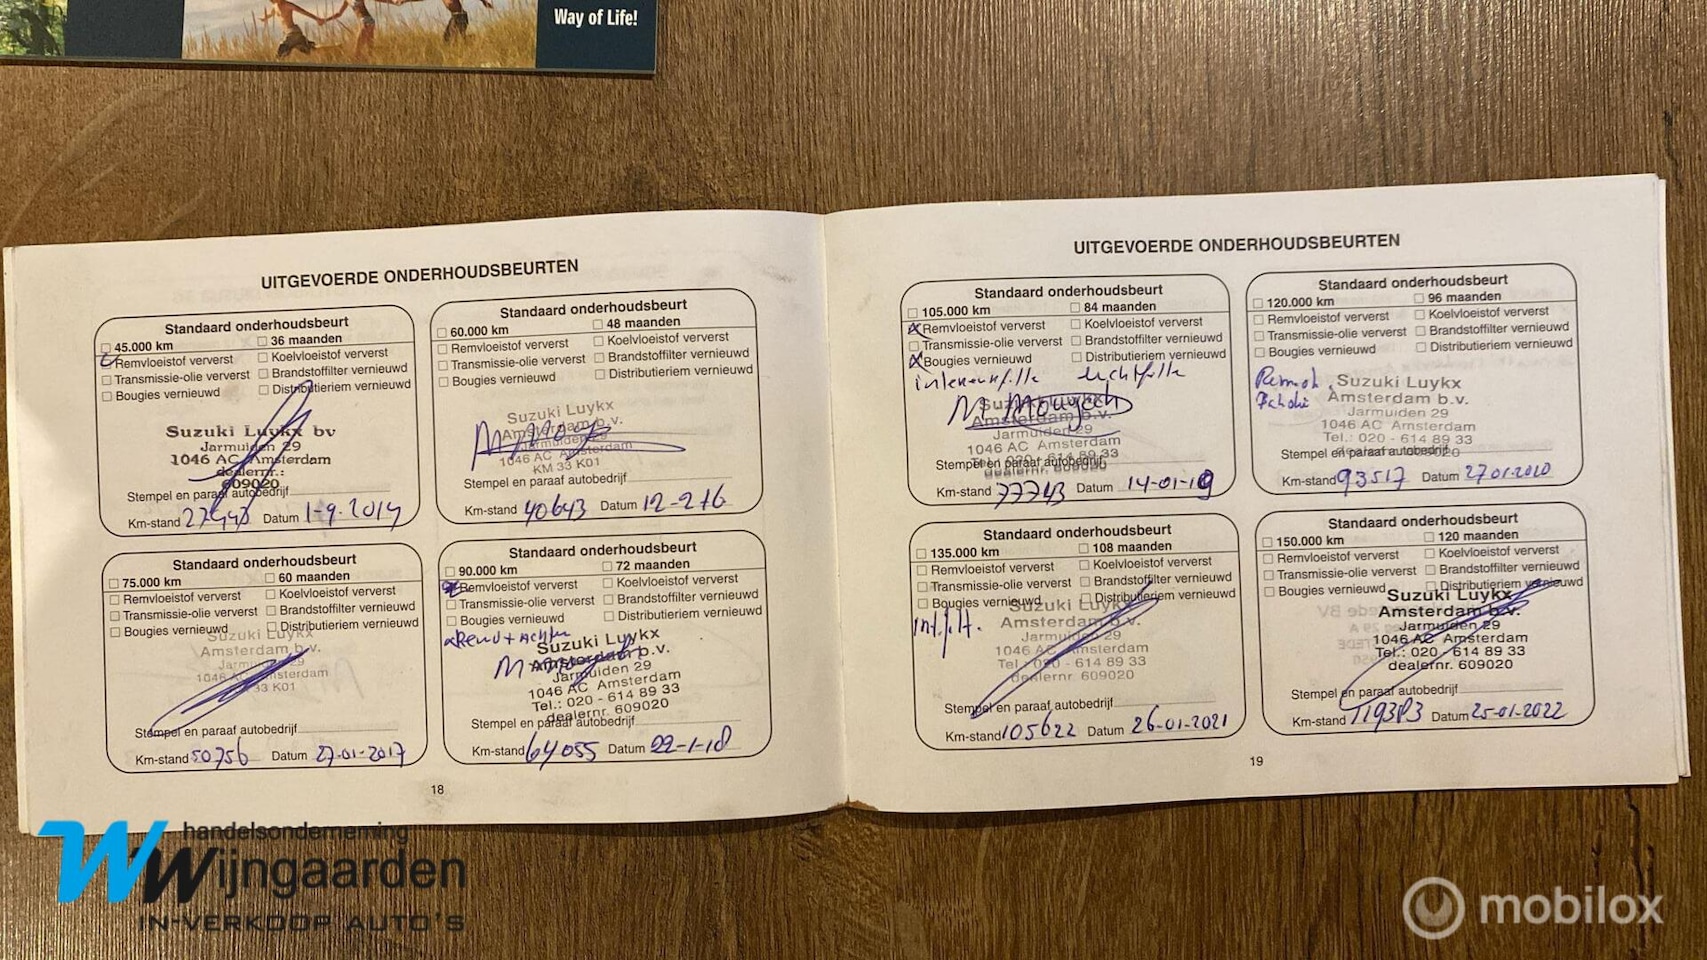 Way of Life!
UITGEVOERDE ONDERHOUDSBEURTEN
Standaard onderhoudsbeurt
45.000 km 36 maanden
Remvloeistof ververst Koelvloeistof ververst
Transmissie-olie ververst Brandstoffilter vernieuwd
Bougies vernieuwd Distributieriem vernieuwd
Suzuki Luykx bv
Jarmuiden 29
1046 AC Amsterdam
dealernr.:
609020
Stempel en paraaf autobedrijf
Km-stand Datum 1-9-2014
Standaard onderhoudsbeurt
60.000 km 48 maanden
Remvloeistof ververst Koelvloeistof ververst
Transmissie-olie ververst Brandstoffilter vernieuwd
Bougies vernieuwd Distributieriem vernieuwd
Suzuki Luykx
Amsterdam b.v.
Jarmuiden 29
1046 AC Amsterdam
KM 33 K01
Stempel en paraaf autobedrijf
Km-stand 40643 Datum 12-2-16
Standaard onderhoudsbeurt
75.000 km 60 maanden
Remvloeistof ververst Koelvloeistof ververst
Transmissie-olie ververst Brandstoffilter vernieuwd
Bougies vernieuwd Distributieriem vernieuwd
Suzuki Luykx
Amsterdam b.v.
Jarmuiden 29
1046 AC Amsterdam
33 K01
Stempel en paraaf autobedrijf
Km-stand 50756 Datum 27-01-2017
Standaard onderhoudsbeurt
90.000 km 72 maanden
Remvloeistof ververst Koelvloeistof ververst
Transmissie-olie ververst Brandstoffilter vernieuwd
Bougies vernieuwd Distributieriem vernieuwd
Suzuki Luykx
Amsterdam b.v.
Jarmuiden 29
1046 AC Amsterdam
Tel.: 020 - 614 89 33
dealernr. 609020
Stempel en paraaf autobedrijf
Km-stand 64055 Datum 22-1-18
18
UITGEVOERDE ONDERHOUDSBEURTEN
Standaard onderhoudsbeurt
105.000 km 84 maanden
Remvloeistof ververst Koelvloeistof ververst
Transmissie-olie ververst Brandstoffilter vernieuwd
Bougies vernieuwd Distributieriem vernieuwd
Suzuki Luykx
Amsterdam b.v.
Jarmuiden 29
1046 AC Amsterdam
Tel.: 020 - 614 89 33
dealernr. 609020
Stempel en paraaf autobedrijf
Km-stand 77743 Datum 14-01-19
Standaard onderhoudsbeurt
120.000 km 96 maanden
Remvloeistof ververst Koelvloeistof ververst
Transmissie-olie ververst Brandstoffilter vernieuwd
Bougies vernieuwd Distributieriem vernieuwd
Suzuki Luykx
Amsterdam b.v.
Jarmuiden 29
1046 AC Amsterdam
Tel.: 020 - 614 89 33
Stempel en paraaf autobedrijf
Km-stand 93517 Datum 27-01-2020
Standaard onderhoudsbeurt
135.000 km 108 maanden
Remvloeistof ververst Koelvloeistof ververst
Transmissie-olie ververst Brandstoffilter vernieuwd
Bougies vernieuwd Distributieriem vernieuwd
Suzuki Luykx
Amsterdam b.v.
Jarmuiden 29
1046 AC Amsterdam
Tel.: 020 - 614 89 33
dealernr. 609020
Stempel en paraaf autobedrijf
Km-stand 105622 Datum 26-01-2021
Standaard onderhoudsbeurt
150.000 km 120 maanden
Remvloeistof ververst Koelvloeistof ververst
Transmissie-olie ververst Brandstoffilter vernieuwd
Bougies vernieuwd Distributieriem vernieuwd
Suzuki Luykx
Amsterdam b.v.
Jarmuiden 29
1046 AC Amsterdam
Tel.: 020 - 614 89 33
dealernr. 609020
Stempel en paraaf autobedrijf
Km-stand Datum 25-01-2022
19
handelsonderneming
Wijngaarden
IN-VERKOOP AUTO'S
mobilox